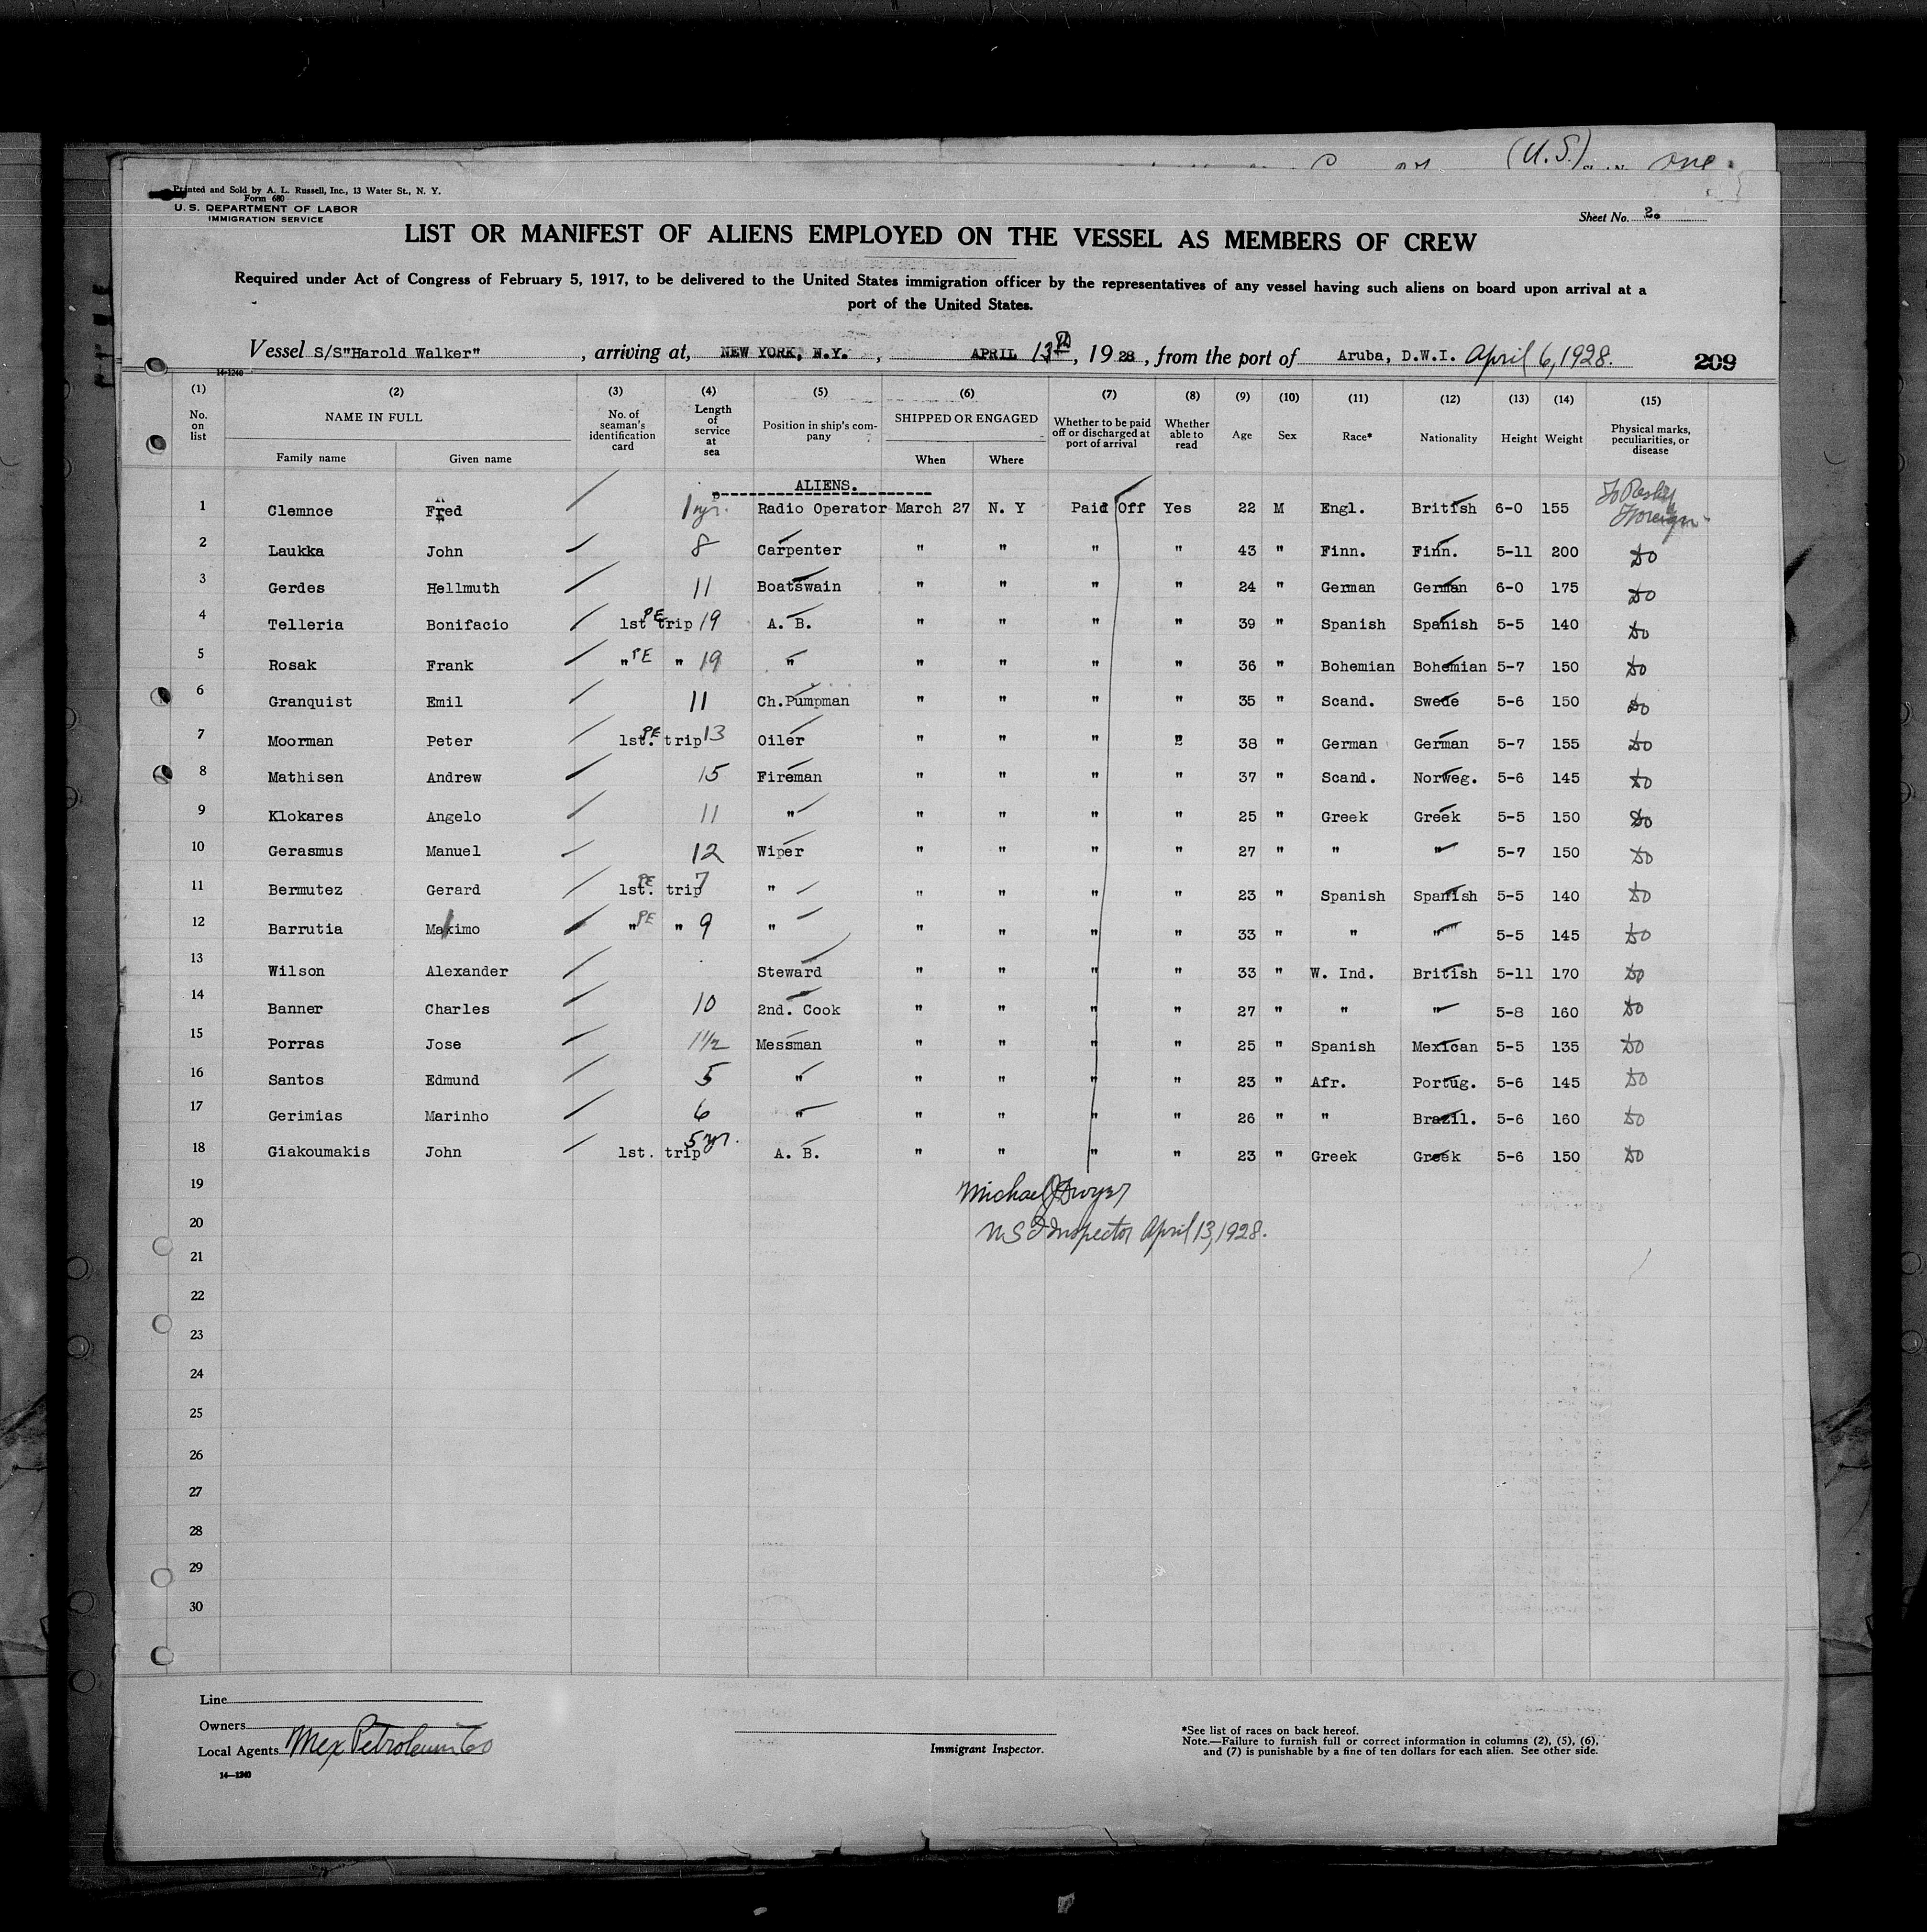 (U.S.) one
Printed and Sold by A. L. Russell, Inc., 13 Water St., N. Y.
Form 680
U. S. DEPARTMENT OF LABOR
IMMIGRATION SERVICE
Sheet No. 2.
LIST OR MANIFEST OF ALIENS EMPLOYED ON THE VESSEL AS MEMBERS OF CREW
Required under Act of Congress of February 5, 1917, to be delivered to the United States immigration officer by the representatives of any vessel having such aliens on board upon arrival at a
port of the United States.
Vessel S/S"Harold Walker" , arriving at, NEW YORK, N.Y. , APRIL 13th, 1928, from the port of Aruba, D.W.I. April 6, 1928. 209
14-1240
(1) (2) (3) (4) (5) (6) (7) (8) (9) (10) (11) (12) (13) (14) (15)
No. on list NAME IN FULL Family name Given name No. of seaman's identification card Length of service at sea Position in ship's company SHIPPED OR ENGAGED When Where Whether to be paid off or discharged at port of arrival Whether able to read Age Sex Race* Nationality Height Weight Physical marks, peculiarities, or disease
ALIENS.
1 Clemnce Fred 1 yr. Radio Operator March 27 N. Y Paid Off Yes 22 M Engl. British 6-0 155 To Reship Foreign
2 Laukka John 8 Carpenter " " " " 43 " Finn. Finn. 5-11 200 Do
3 Gerdes Hellmuth 11 Boatswain " " " " 24 " German German 6-0 175 Do
4 Telleria Bonifacio 1st PE trip 19 A. B. " " " " 39 " Spanish Spanish 5-5 140 Do
5 Rosak Frank " PE " 19 " " " " " 36 " Bohemian Bohemian 5-7 150 Do
6 Granquist Emil 11 Ch.Pumpman " " " " 35 " Scand. Swede 5-6 150 Do
7 Moorman Peter 1st. PE trip 13 Oiler " " " " 38 " German German 5-7 155 Do
8 Mathisen Andrew 15 Fireman " " " " 37 " Scand. Norweg. 5-6 145 Do
9 Klokares Angelo 11 " " " " " 25 " Greek Greek 5-5 150 Do
10 Gerasmus Manuel 12 Wiper " " " " 27 " " " 5-7 150 Do
11 Bermutez Gerard 1st. PE trip 7 " " " " " 23 " Spanish Spanish 5-5 140 Do
12 Barrutia Makimo " PE " 9 " " " " " 33 " " " 5-5 145 Do
13 Wilson Alexander Steward " " " " 33 " W. Ind. British 5-11 170 Do
14 Banner Charles 10 2nd. Cook " " " " 27 " " " 5-8 160 Do
15 Porras Jose 1 1/2 Messman " " " " 25 " Spanish Mexican 5-5 135 Do
16 Santos Edmund 5 " " " " " 23 " Afr. Portug. 5-6 145 Do
17 Gerimias Marinho 6 " " " " " 26 " " Brazil. 5-6 160 Do
18 Giakoumakis John 1st. trip 5 yr. A. B. " " " " 23 " Greek Greek 5-6 150 Do
19 Michael J Dwyer
20 U S I Inspector April 13, 1928.
21
22
23
24
25
26
27
28
29
30
Line
Owners
Local Agents Mex Petroleum Co
14—1240
Immigrant Inspector.
*See list of races on back hereof.
Note.—Failure to furnish full or correct information in columns (2), (5), (6),
and (7) is punishable by a fine of ten dollars for each alien. See other side.